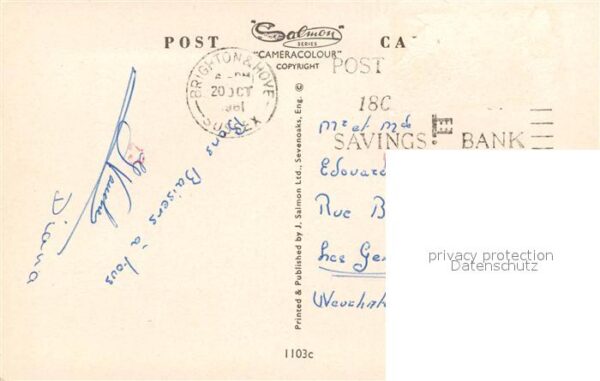 POST CA
"Salmon"
SERIES
"CAMERACOLOUR"
COPYRIGHT
BRIGHTON & HOVE
20 OCT
1961
SUSSEX
POST
SAVINGS BANK
Bons Baisers à tous
Diana
Printed & Published by J. Salmon Ltd., Sevenoaks, Eng. ©
Mr et Md
Edouard
Rue B
Les Gen
privacy protection
Datenschutz
1103c